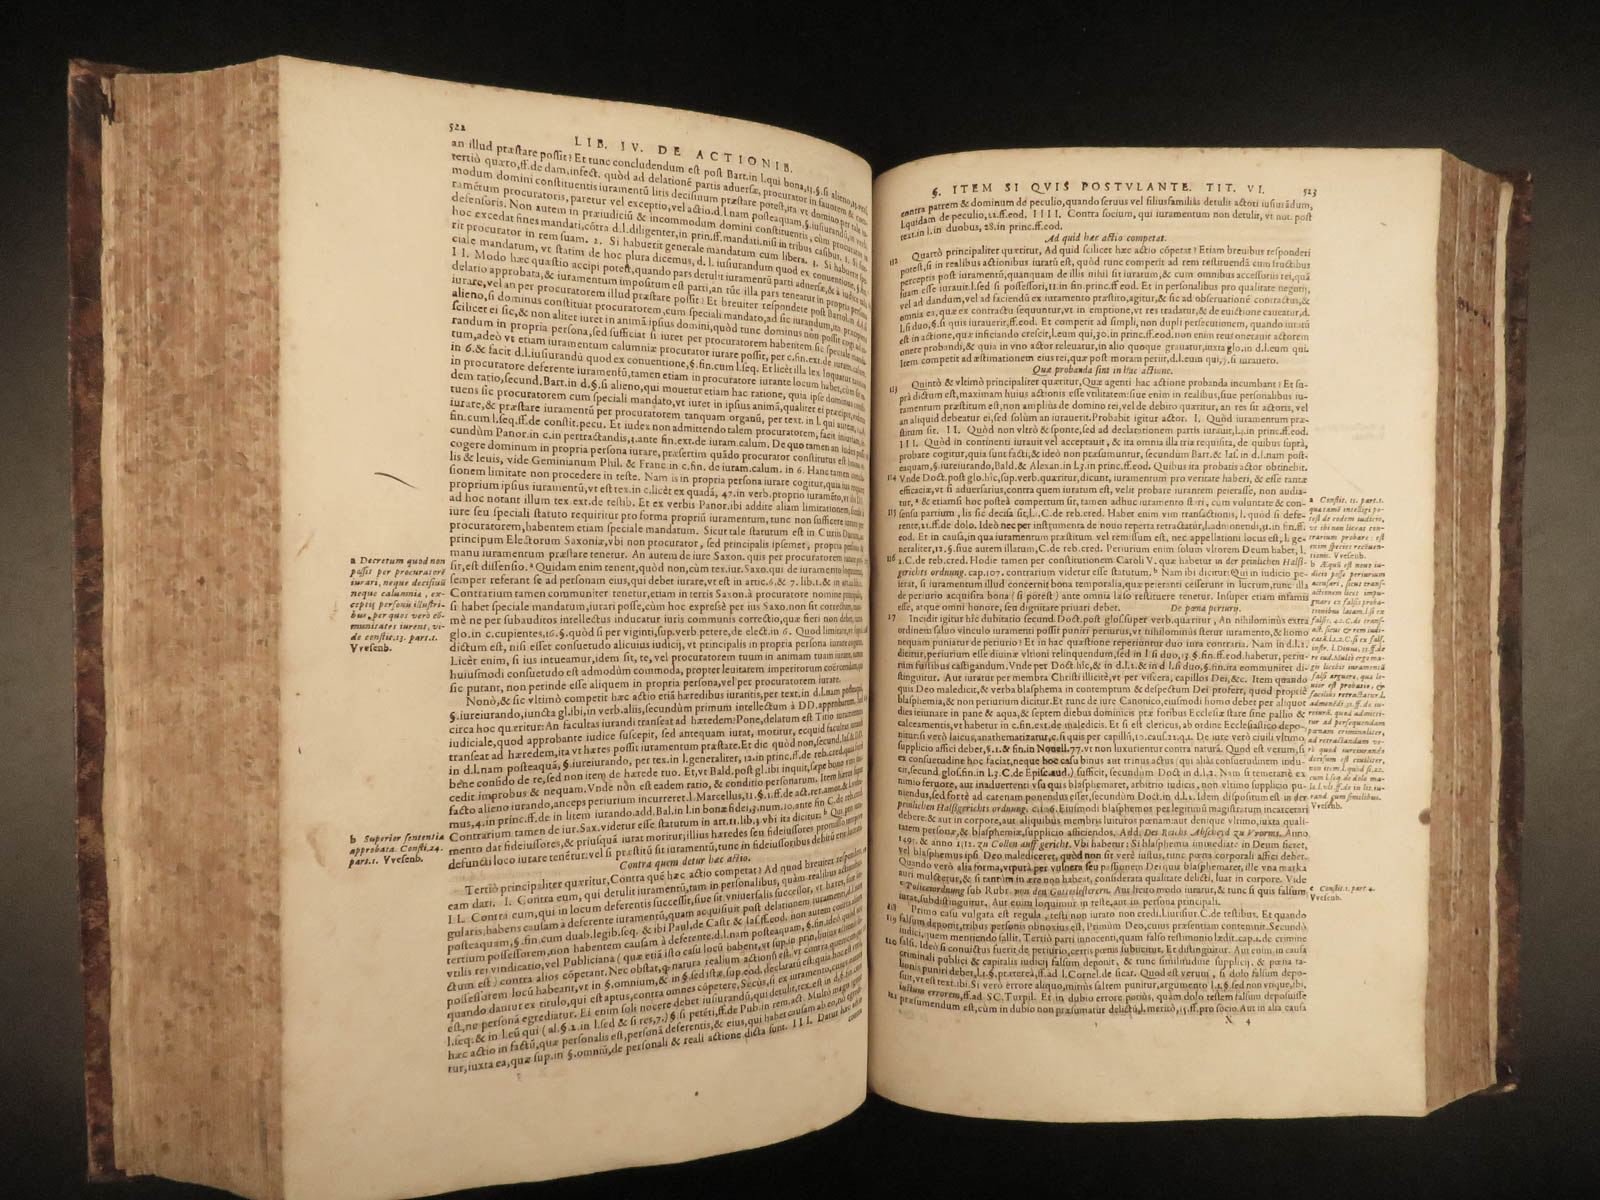 522
LIB. IV. DE ACTIONIB.
an illud præstare possit? Et tunc concludendum est post Bart. in l. qui bona, 13. §. si alieno,
tertiò quæro, ff. de dam. infect. quòd ad delationē partis adversæ, procurator in
modum domini constituentis iuramentū litis decisiuum præstare potest, ita vt domino
defensoris. Non autem in præiudiciū & incommodum domini constituentis, cùm procurator
hoc excedat fines mandati, cōtra d. l. diligenter, in prin. ff. mandati. nisi in tribus casibus. 1. Si
rit procurator in rem suam. 2. Si habuerit generale mandatum cum libera.
ciale mandatum, vt statim de hoc plura dicemus, d. l. iusiurandum quod ex conuentione,
II. Modo hæc quæstio accipi potest, quando pars detulit iuramentū parti aduersæ, & à iudice
delatio approbata, & iuramentum impositum est parti, an tūc illa pars teneatur in propria persona
iurare, vel an per procuratorem illud præstare possit? Et breuiter respondere post Bartol. in d. §. si
alieno, si dominus constituat procuratorem, cum speciali mandato, ad sic iurandum,
scilicet ei sic, & non aliter iuret in animā ipsius domini, quòd tunc dominus non possit cogi ad
randum in propria persona, sed sufficiat si iuret per procuratorem habentem sic speciale
tum, adeò vt etiam iuramentum calumniæ procurator iurare possit, per c. fin. ext. de iuram. calum.
in 6. & facit d. l. iusiurandū quod ex conuentione, §. fin. cum l. seq. Et licèt illa lex loquatur
in procuratore deferente iuramentū, tamen etiam in procuratore iurante locum habet,
dem ratio, secund. Bart. in d. §. si alieno, qui mouetur etiam hac ratione, quia ipse dominus
tuens sic procuratorem cum speciali mandato, vt iuret in ipsius animā, qualiter ei præcipit,
iurare, & præstare iuramentū per procuratorem tanquam organū, per text. in l. qui autem,
fin. cum l. seq. ff. de constit. pecu. Et iudex non admittendo talem procuratorem, facit iniuriam,
cundùm Panor. in c. in pertractandis, 1. ante fin. ext. de iuram. calum. De quo tamen an iudex
cogere dominum in propria persona iurare, præsertim quādo procurator constitutus est
lis & leuis, vide Geminianum Phil. & Franc. in c. fin. de iuram. calum. in 6. Hanc tamen
sionem limitate non procedere in teste. Nam is in propria persona iurare cogitur, quia
proprium ipsius iuramentū, vt est tex. in c. licèt ex quadā, 47. in verb. proprio iuramēto,
ad hoc notant illum tex. ext. de testib. Et ex verbis Panor. ibi addite aliam limitationem,
iure seu speciali statuto requiritur pro forma propriū iuramentum, tunc non sufficere
procuratorem, habentem etiam speciale mandatum. Sicut tale statutum est in Curiis
principum Electorum Saxoniæ, vbi non procurator, sed principalis ipsemet, propria
manu iuramentum præstare tenetur. An autem de iure Saxon. quis per procuratorem iurare
sit, est dissensio. ª Quidam enim tenent, quòd non, cùm tex. iur. Saxo. qui de iuramento loquuntur,
semper referant se ad personam eius, qui debet iurare, vt est in artic. 6. & 7. lib. 1. & in
Contrarium tamen communiter tenetur, etiam in terris Saxon. à procuratore nomine principalis,
si habet speciale mandatum, iurari posse, cùm hoc expressè per ius Saxon. non sit correctum,
mè ne per subauditos intellectus inducatur iuris communis correctio, quæ fieri non debet,
glo. in c. cupientes, 16. §. quòd si per viginti, sup. verb. petere, de elect. in 6. Quod limitate,
dictum est, nisi esset consuetudo alicuius iudicij, vt principalis in propria persona iurare cogatur.
Licèt enim, si ius intueamur, idem sit, te, vel procuratorem tuum in animam tuam iurare,
huiusmodi consuetudo est admodùm commoda, propter leuitatem imperitorum coërcendam,
sic putant, non perinde esse aliquem in propria persona, vel per procuratorem iurare.
Nonò, & sic vltimò competit hæc actio etiā hæredibus iurantis, per text. in d. l. nam posteaquam,
§. iureiurando, iuncta gl. ibi, in verb. aliis, secundùm primum intellectum à DD. approbatum.
circa hoc quæritur: An facultas iurandi transeat ad hæredem? Pone, delatum est Titio iuramentum
iudiciale, quod approbante iudice suscepit, sed antequam iurat, moritur,
transeat ad hæredem, ita vt hæres possit iuramentum præstare. Et dic quòd non, secund.
in d. l. nam posteaquā, §. iureiurando, per tex. in l. generaliter, 12. in princ. ff. de reb. cred.
bene consido de te, sed non item de hærede tuo. Et, vt Bald. post gl. ibi inquit, sæpe bono
cedit improbus & nequam. Vnde non est eadem ratio, & conditio personarum. Item
facto alieno iurando, anceps periurium incurreret. l. Marcellus, 11. §. 1. ff. de act. ret. amot. &
mus, 4. in princ. ff. de in litem iurando. add. Bal. in l. in bonæ fidei, 3. num. 10. ante fin. C. de reb. cred.
Contrarium tamen de iur. Sax. videtur esse statutum in art. 11. lib. 3. vbi ita dicitur: b Qui pro
mento dat fideiussores, & priusquā iurat moritur, illius hæredes seu fideiussores
defuncti loco iurare tenētur: vel si præstitū sit iuramentū, tunc in fideiussoribus debitū
Contra quem detur hæc actio.
Tertiò principaliter quæritur, Contra quē hæc actio competat? Ad quod breuiter respondere,
eam dari. I. Contra eum, qui detulit iuramentū, tam in personalibus, quàm realibus actionibus.
II. Contra eum, qui in locum deferentis successit, siue sit vniuersalis successor, vt hæres, siue
gularis, habens causam à deferente iuramentū, quam acquisiuit post delationem iuramenti,
posteaquam, §. fin. cum duab. legib. seq. & ibi Paul. de Cast. & Ias. ff. eod. non autem contra
tertium possessorem, non habentem causam à deferente. d. l. nam posteaquam, §. fin.
vtilis rei vindicatio, vel Publiciana (quæ etiā isto casu locū habent, vt sup. in prin.
ctum est) contra alios cōperant. Nec obstat, ꝙ natura realium actionū est, vt contra quemcunque
possessorem locū habeant, vt in §. omnium, & in §. sed istæ, sup. eod. declaratū est:
quando dantur ex titulo, qui est aptus, contra omnes cōpetere. Secùs, si ex iuramento,
est, ne personā egrediatur. Ei enim soli nocere debet iusiurandū, qui detulit, tex. est in d. §. fin.
l. seq. & in l. eū qui (al. §. 2. in l. sed & si res, 7.) §. si petēti, ff. de Publ. in rem act. Multò magis
hæc actio in factū, quæ personalis est, personā deferentis, & eius, qui habet causam ab eo, nō
tur, iuxta ea, quæ sup. in §. omniū, de personali & reali actione dicta sunt. III. Datur hæc
contra
a Decretum quod non
possit per procuratorē
iurari, neque decisiuū
neque calumnia, ex-
ceptis personis illustri-
bus, per quos verò cō-
munitates iurent, vi-
de constit. 13. part. 1.
Vvesenb.
b Superior sententia
approbata. Consti. 24.
part. 1. Vvesenb.
§. ITEM SI QVIS POSTVLANTE. TIT. VI. 523
contra patrem & dominum de peculio, quando seruus vel filiusfamiliâs detulit actori iusiurādum,
l. quidam de peculio, 21. ff. eod. IIII. Contra socium, qui iuramentum non detulit, vt not. post
text. in l. in duobus, 28. in princ. ff. eod.
Ad quid hæc actio competat.
112 Quartò principaliter quæritur, Ad quid scilicet hæc actio cōpetat? Etiam breuibus responderi
potest, si in realibus actionibus iuratū est, quòd tunc comperit ad rem restituendā cum fructibus
perceptis post iuramentū, quanquam de illis nihil sit iuratum, & cum omnibus accessoriis rei, quā
suam esse iurauit. l. sed si possessori, 11. in fin. princ. ff. eod. Et in personalibus pro qualitate negotij,
vel ad dandum, vel ad faciendū ex iuramento præstito, agitur, & sic ad obseruationē contractus, &
omnia ea, quæ ex contractu sequuntur, vt in emptione, vt res tradatur, & de euictione caueatur, d.
l. si duo, §. si quis iurauerit, ff. eod. Et competit ad simpli, non dupli persecutionem, quando iuratū
est in actione, quæ inficiando crescit, l. eum qui, 30. in princ. ff. eod. non enim reus onerauit actorem
onere probandi, & quia in vno actor releuatur, in alio quoque grauatur, iuxta glo. in d. l. eum qui.
Item competit ad æstimationem eius rei, quæ post moram periit, d. l. eum qui, §. si iurauero.
Quæ probanda sint in hac actione.
113 Quintò & vltimò principaliter quæritur, Quæ agenti hac actione probanda incumbant? Et su-
prà dictum est, maximam huius actionis esse vtilitatem: siue enim in realibus, siue personalibus iu-
ramentum præstitum est, non ampliùs de domino rei, vel de debito quæritur, an res sit actoris, vel
an aliquid debeatur ei, sed solùm an iurauerit. Probabit igitur actor. I. Quòd iuramentum præ-
stitum sit. II. Quòd non vltrò & sponte, sed ad delationem partis iurauit, l. 3. in princ. ff. eod.
III. Quòd in continenti iurauit vel acceptauit, & ita omnia illa tria requisita, de quibus suprà,
probare cogitur, quia sunt facti, & ideò non præsumūtur, secundùm Bart. & Ias. in d. l. nam post-
eaquam, §. iureiurando, Bald. & Alexan. in l. 3. in princ. ff. eod. Quibus ita probatis actor obtinebit.
114 Vnde Doct. post glo. hîc, sup. verb. quæritur, dicunt, iuramentum pro veritate haberi, & esse tantæ
efficaciæ, vt si aduersarius, contra quem iuratum est, velit probare iurantem peierasse, non audia-
tur, a & etiamsi hoc posteà compertum sit, tamen adhuc iuramento stari, cùm voluntate & con-
115 sensu partium, lis sic decisa sit, l. 1. C. de reb. cred. Habet enim vim transactionis, l. quòd si defe-
rente, 21. ff. de dolo. Ideò nec per instrumenta de nouo reperta retractatur, l. admonendi, 31. in fin. ff.
eod. Et in causa, in qua iuramentum præstitum vel remissum est, nec appellationi locus est, l. ge-
neraliter, 12. §. siue autem illatum, C. de reb. cred. Periurium enim solum vltorem Deum habet, l.
116 2. C. de reb. cred. Hodie tamen per constitutionem Caroli V. quæ habetur in der peinlichen Halß-
gerichts ordnung. cap. 107. contrarium videtur esse statutum. b Nam ibi dicitur: Qui in iudicio pe-
ierat, si iuramentum illud concernit bona temporalia, quæ peieranti cesserunt in lucrum, tunc illa
de periurio acquisita bona (si potest) ante omnia læso restituere tenetur. Insuper etiam infamis
esse, atque omni honore, seu dignitate priuari debet. De pœna periurij.
17 Incidit igitur hîc dubitatio secund. Doct. post glos. super verb. quæritur, An nihilominùs extra
ordinem saluo vinculo iuramenti possit puniri periurus, vt nihilominùs stetur iuramento, & homo
nequam puniatur de periurio? Et in hac quæstione reperiuntur duo iura contraria. Nam in d. l. 2.
dicitur, periurium esse diuinæ vltioni relinquendum, sed in l. si duo, 13. §. fin. ff. eod. habetur, periu-
rum fustibus castigandum. Vnde per Doct. hîc, & in d. l. 2. & in d. l. si duo, §. fin. ita communiter di-
stinguitur. Aut iuratur per membra Christi illicitè, vt per viscera, capillos Dei, &c. Item quando
quis Deo maledicit, & verba blasphema in contemptum & despectum Dei profert, quod propriè
blasphemia, & non periurium dicitur. Et tunc de iure Canonico, eiusmodi homo debet per aliquot
dies ieiunare in pane & aqua, & septem diebus dominicis præ foribus Ecclesiæ stare sine pallio &
calceamentis, vt habetur in c. fin. ext. de maledicis. Et si est clericus, ab ordine Ecclesiastico depo-
nitur: si verò laicus, anathematizatur, c. si quis per capillū, 10. causa 22. q. 1. De iure verò ciuili vltimo
supplicio affici debet, §. 1. & fin. in Nouell. 77. vt non luxurientur contra naturā. Quod est verum, si
ex consuetudine hoc faciat, neque hoc casu binus aut trinus actus (qui aliàs consuetudinem indu-
cit, secund. glos. fin. in l. 3. C. de Episc. aud.) sufficit, secundùm Doct. in d. l. 2. Nam si temerariè ex
nimio feruore, aut inaduertenti vsu quis blasphematur, arbitrio iudicis, non vltimo supplicio pu-
niendus, sed fortè ad catenam ponendus esset, secundùm Doct. in d. l. 2. Idem dispositum est in der
peinlichen Halßgerichts ordnung. c. 106. Eiusmodi blasphemus per legitimum magistratum iudicari
debere: & aut in corpore, aut aliquibus membris luituros pœnam: aut denique vltimo, iuxta quali-
tatem personæ, & blasphemiæ, supplicio afficiendos. Add. Des Reichs Abscheyd zu Vvorms. Anno,
1495. & anno 1512. zu Collen auff gericht. Vbi habetur: Si blasphemia immediatè in Deum fieret,
vel blasphemus ipsi Deo malediceret, quòd non sit verè iustus, tunc pœna corporali affici debet.
Quando verò alia forma, vtputà per vulnera seu passionem Dei quis blasphemaret, ille vna marka
auri mulctetur, & si tantùm in ære non habeat, considerata qualitate delicti, luat in corpore. Vide
c Policeiordnung sub Rubr. von den Gotteslesterern. Aut licito modo iuratur, & tunc si quis falsum
iurat, subdistinguitur. Aut enim loquimur in teste, aut in persona principali.
118 Primo casu vulgata est regula, testi non iurato non credi. l. iurisiur. C. de testibus. Et quando
119 falsum deponit, tribus personis obnoxius est, Primùm Deo, cuius præsentiam contemnit. Secundò
iudici, quem mentiendo fallit. Tertiò parti innocenti, quam falso testimonio lædit. cap. 1. de crimine
120 falsi. Ideò si conuictus fuerit de periurio, certis pœnis subiicitur. Et distinguitur. Aut enim in causa
criminali publici & capitalis iudicij falsum deponit, & tunc similitudine supplicij, & pœna ta-
lionis puniri debet, l. 1. §. præterea, ff. ad l. Cornel. de sicar. Quod est verum, si dolo falsum depo-
suit, vt est text. ibi. Si verò errore aliquo, minùs saltem punitur, argumento l. 1. §. sed non vtique, ibi,
iustum errorem, ff. ad SC. Turpil. Et in dubio errore potiùs, quàm dolo testem falsum deposuisse
121 præsumendum est, cùm in dubio non præsumatur delictū, l. meritò, 51. ff. pro socio. Aut in alia causa
X 4
a Constit. 11. part. 1.
quatamē intelligi po-
test de eodem iudicio,
vt ibi non liceat con-
trarium probare: est
enim species
Vvesenb.
b Æquū est nouo iu-
dicio posse periurium
accusari, sicut trans-
actionem licet impu-
gnare ex falsis proba-
tionibus latam. l. si ex
falsis, 42. C. de trans-
act. sicut & rem iudi-
catā. l. 1. 2. C. si ex fals.
instr. l. Diuus, 33. ff. de
re iud. Multò ergo ma-
gis licebit iuramentū
falsi arguere, quo le-
uior est probatio, &
faciliùs retractatur. l.
admonēdi 31. ff. de iu-
reiurā. quod admitti-
tur ad persequendam
pœnam criminaliter,
ad retractandum ve-
rò quod iureiurando
decisum est ciuiliter,
non item. l. quòd si, 22.
cum l. seq. de dolo ma-
lo. l. vlt. ff. de in lit. iu-
rand. cum similibus.
Vvesenb.
c Constit. 1. part. 4.
Vvesenb.